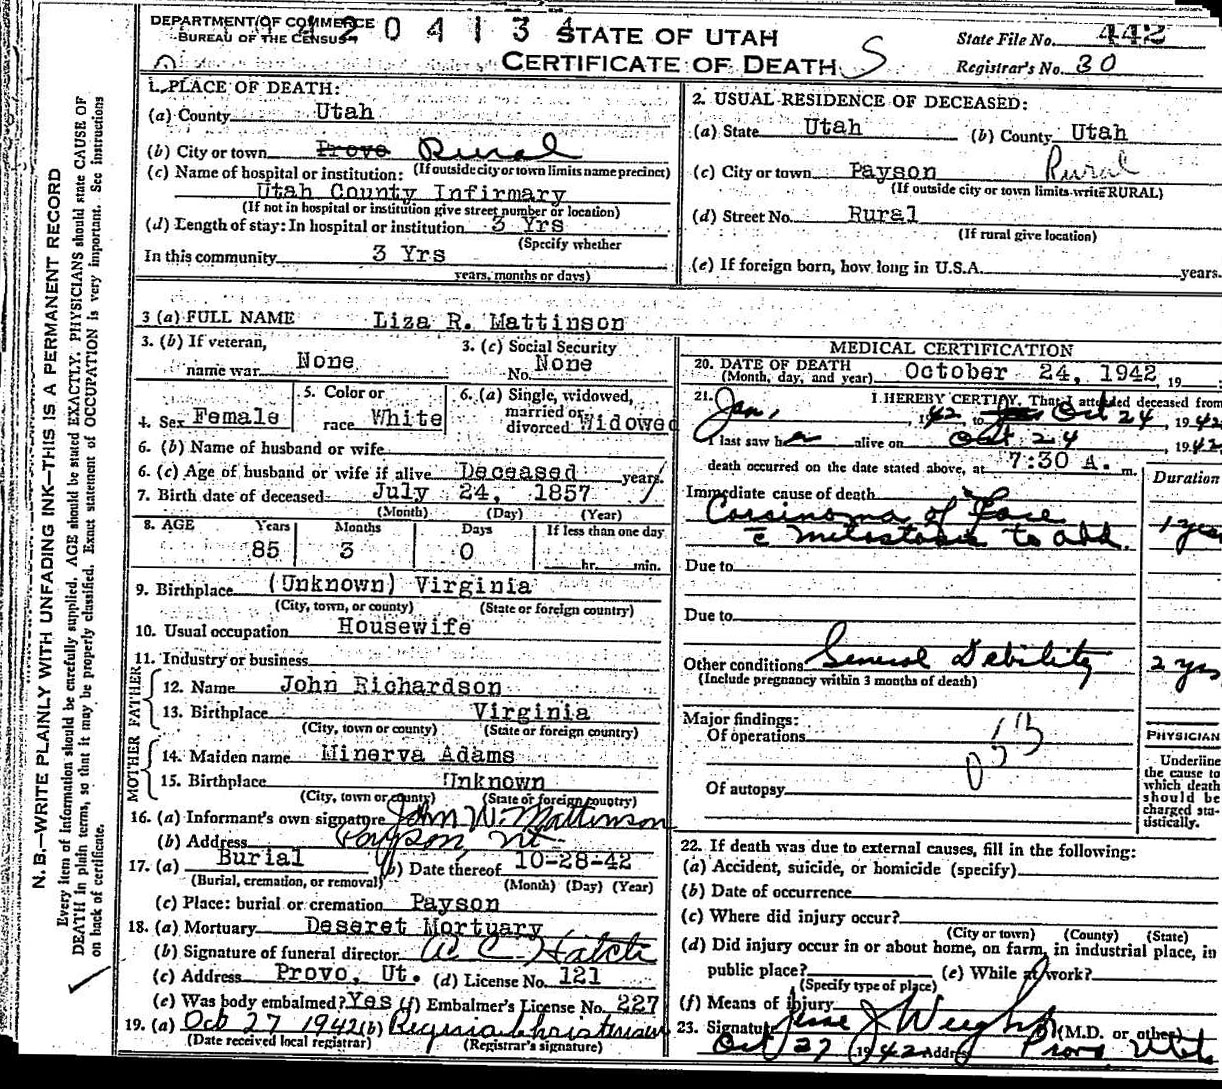 DEPARTMENT OF COMMERCE
BUREAU OF THE CENSUS
2 0 4 1 3 4
STATE OF UTAH
CERTIFICATE OF DEATH S
State File No. 442
Registrar's No. 30
1. PLACE OF DEATH:
(a) County Utah
(b) City or town Provo Rural
(If outside city or town limits name precinct)
(c) Name of hospital or institution:
Utah County Infirmary
(If not in hospital or institution give street number or location)
(d) Length of stay: In hospital or institution 3 Yrs
(Specify whether
In this community 3 Yrs
years, months or days)
2. USUAL RESIDENCE OF DECEASED:
(a) State Utah (b) County Utah
(c) City or town Payson Rural
(If outside city or town limits write RURAL)
(d) Street No. Rural
(If rural give location)
(e) If foreign born, how long in U.S.A. years.
3 (a) FULL NAME Liza R. Mattinson
3. (b) If veteran,
name war None
3. (c) Social Security
No. None
4. Sex Female
5. Color or
race White
6. (a) Single, widowed,
married or
divorced Widowed
6. (b) Name of husband or wife
6. (c) Age of husband or wife if alive Deceased years
7. Birth date of deceased July 24, 1857
(Month) (Day) (Year)
8. AGE Years Months Days If less than one day
85 3 0 hr. min.
9. Birthplace (Unknown) Virginia
(City, town, or county) (State or foreign country)
10. Usual occupation Housewife
11. Industry or business
FATHER
12. Name John Richardson
13. Birthplace Virginia
(City, town or county) (State or foreign country)
MOTHER
14. Maiden name Minerva Adams
15. Birthplace Unknown
(City, town or county) (State or foreign country)
16. (a) Informant's own signature John W. Mattinson
(b) Address Payson, Ut
17. (a) Burial (b) Date thereof 10-28-42
(Burial, cremation, or removal) (Month) (Day) (Year)
(c) Place: burial or cremation Payson
18. (a) Mortuary Deseret Mortuary
(b) Signature of funeral director
(c) Address Provo, Ut. (d) License No. 121
(e) Was body embalmed? Yes (f) Embalmer's License No. 227
19. (a) Oct 27 1942 (b)
(Date received local registrar) (Registrar's signature)
MEDICAL CERTIFICATION
20. DATE OF DEATH
(Month, day, and year) October 24, 1942, 19
21. I HEREBY CERTIFY, That I attended deceased from
Jan, 1942 to Oct 24, 1942
I last saw her alive on Oct 24 1942
death occurred on the date stated above, at 7:30 A. m.
Duration
Immediate cause of death
Carsinoma of Face 1 year
c̄ metastasis to abd.
Due to
Due to
Other conditions General Debility 2 yrs
(Include pregnancy within 3 months of death)
Major findings:
Of operations
053
Of autopsy
PHYSICIAN
Underline
the cause to
which death
should be
charged sta-
tistically.
22. If death was due to external causes, fill in the following:
(a) Accident, suicide, or homicide (specify)
(b) Date of occurrence
(c) Where did injury occur?
(City or town) (County) (State)
(d) Did injury occur in or about home, on farm, in industrial place, in
public place? (e) While at work?
(Specify type of place)
(f) Means of injury
23. Signature (M.D. or other)
Oct 27 1942 Address Provo, Utah
N. B.—WRITE PLAINLY WITH UNFADING INK—THIS IS A PERMANENT RECORD
Every item of information should be carefully supplied. AGE should be stated EXACTLY. PHYSICIANS should state CAUSE OF
DEATH in plain terms, so that it may be properly classified. Exact statement of OCCUPATION is very important. See instructions
on back of certificate.